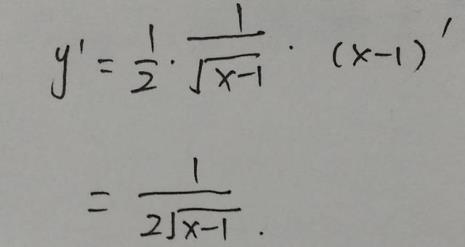 y' = 1/2 · 1/√(x-1) · (x-1)'
= 1/(2√(x-1)).